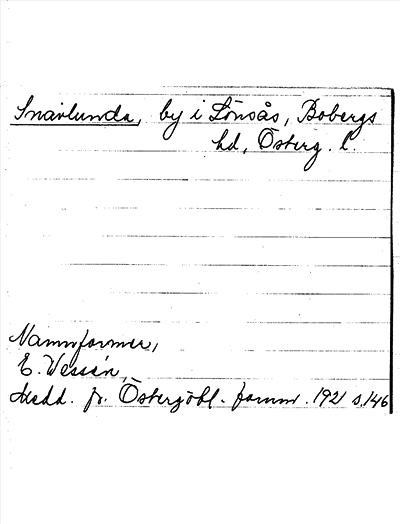 Snavlunda, by i Lönsås, Bobergs
hd, Österg. l.
Namnformer,
E. Wessén,
Medd. fr. Östergötl. fornm. 1921 s. 146